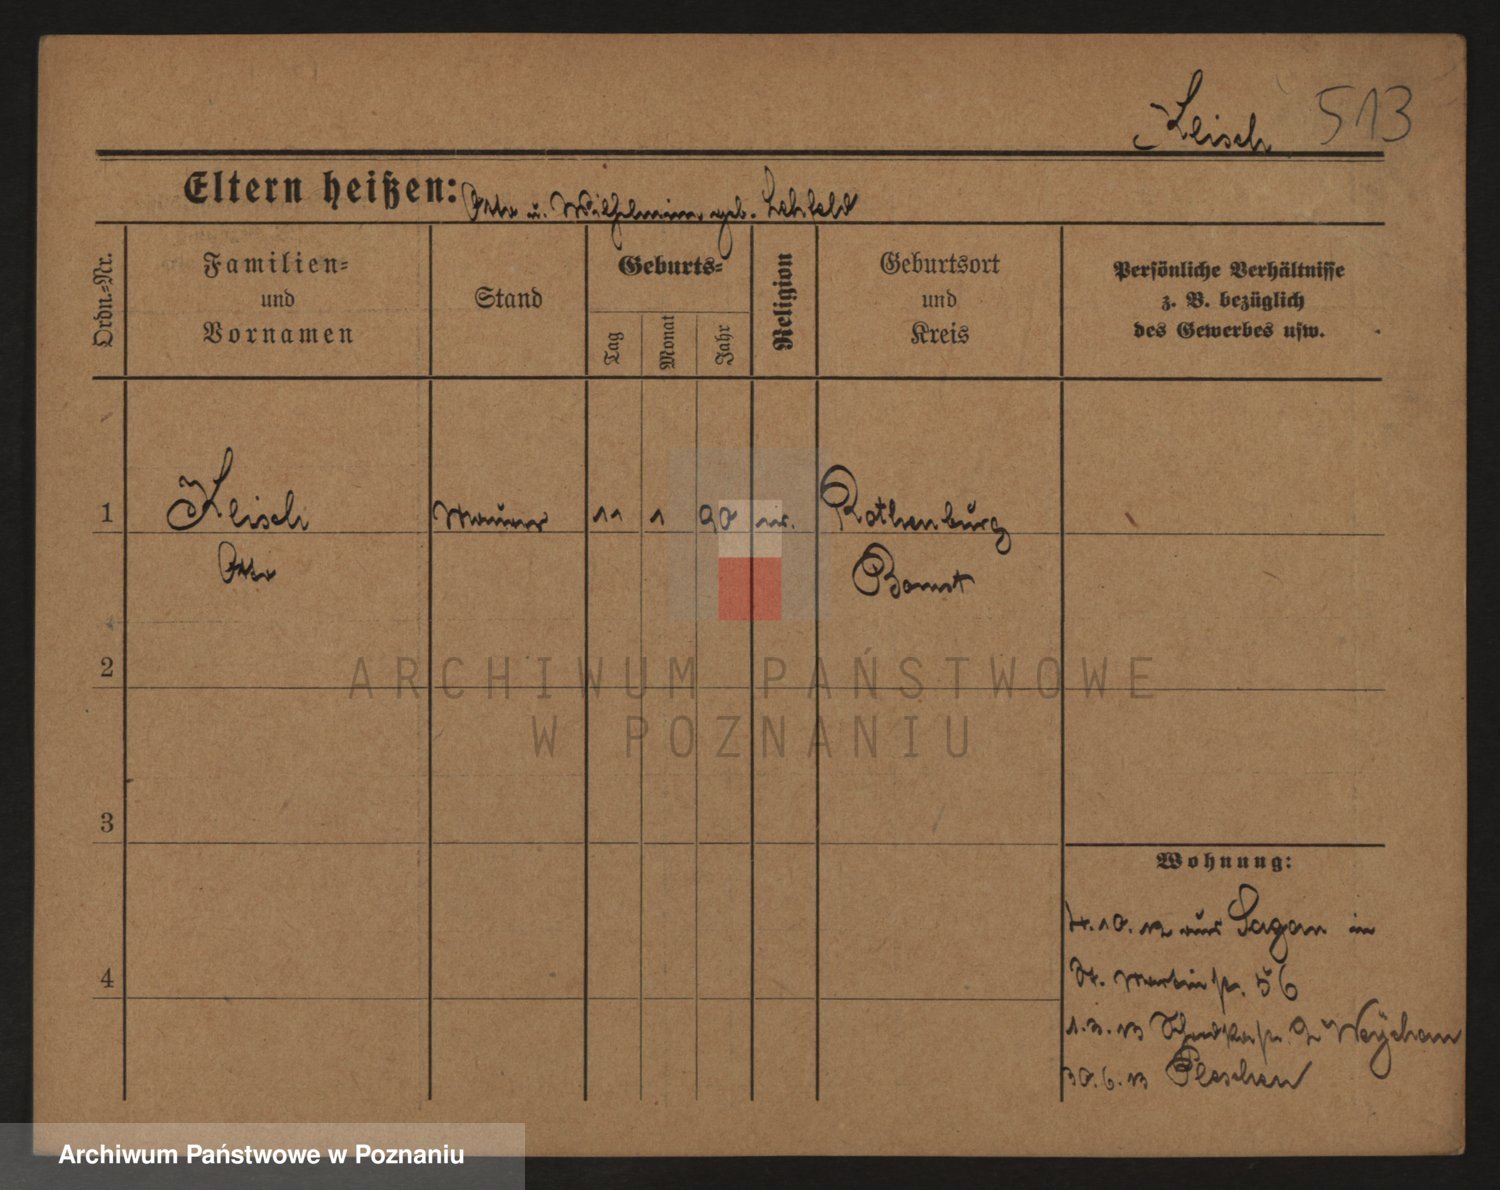 Leisch 513
Eltern heißen: Otto u. Wilhelmine geb.
Ordn.-Nr.
Familien-
und
Vornamen
Stand
Geburts-
Tag
Monat
Jahr
Religion
Geburtsort
und
Kreis
Persönliche Verhältnisse
z. B. bezüglich
des Gewerbes usw.
1 Leisch Maurer 11 1 90 Rothenburg
Otto Bomst
2
3
4
Wohnung:
.10.12 aus Sagan in
St. Martinstr. 56
1.3.13 Weychan
30.6.13 Pleschen
ARCHIWUM PAŃSTWOWE
W POZNANIU
Archiwum Państwowe w Poznaniu